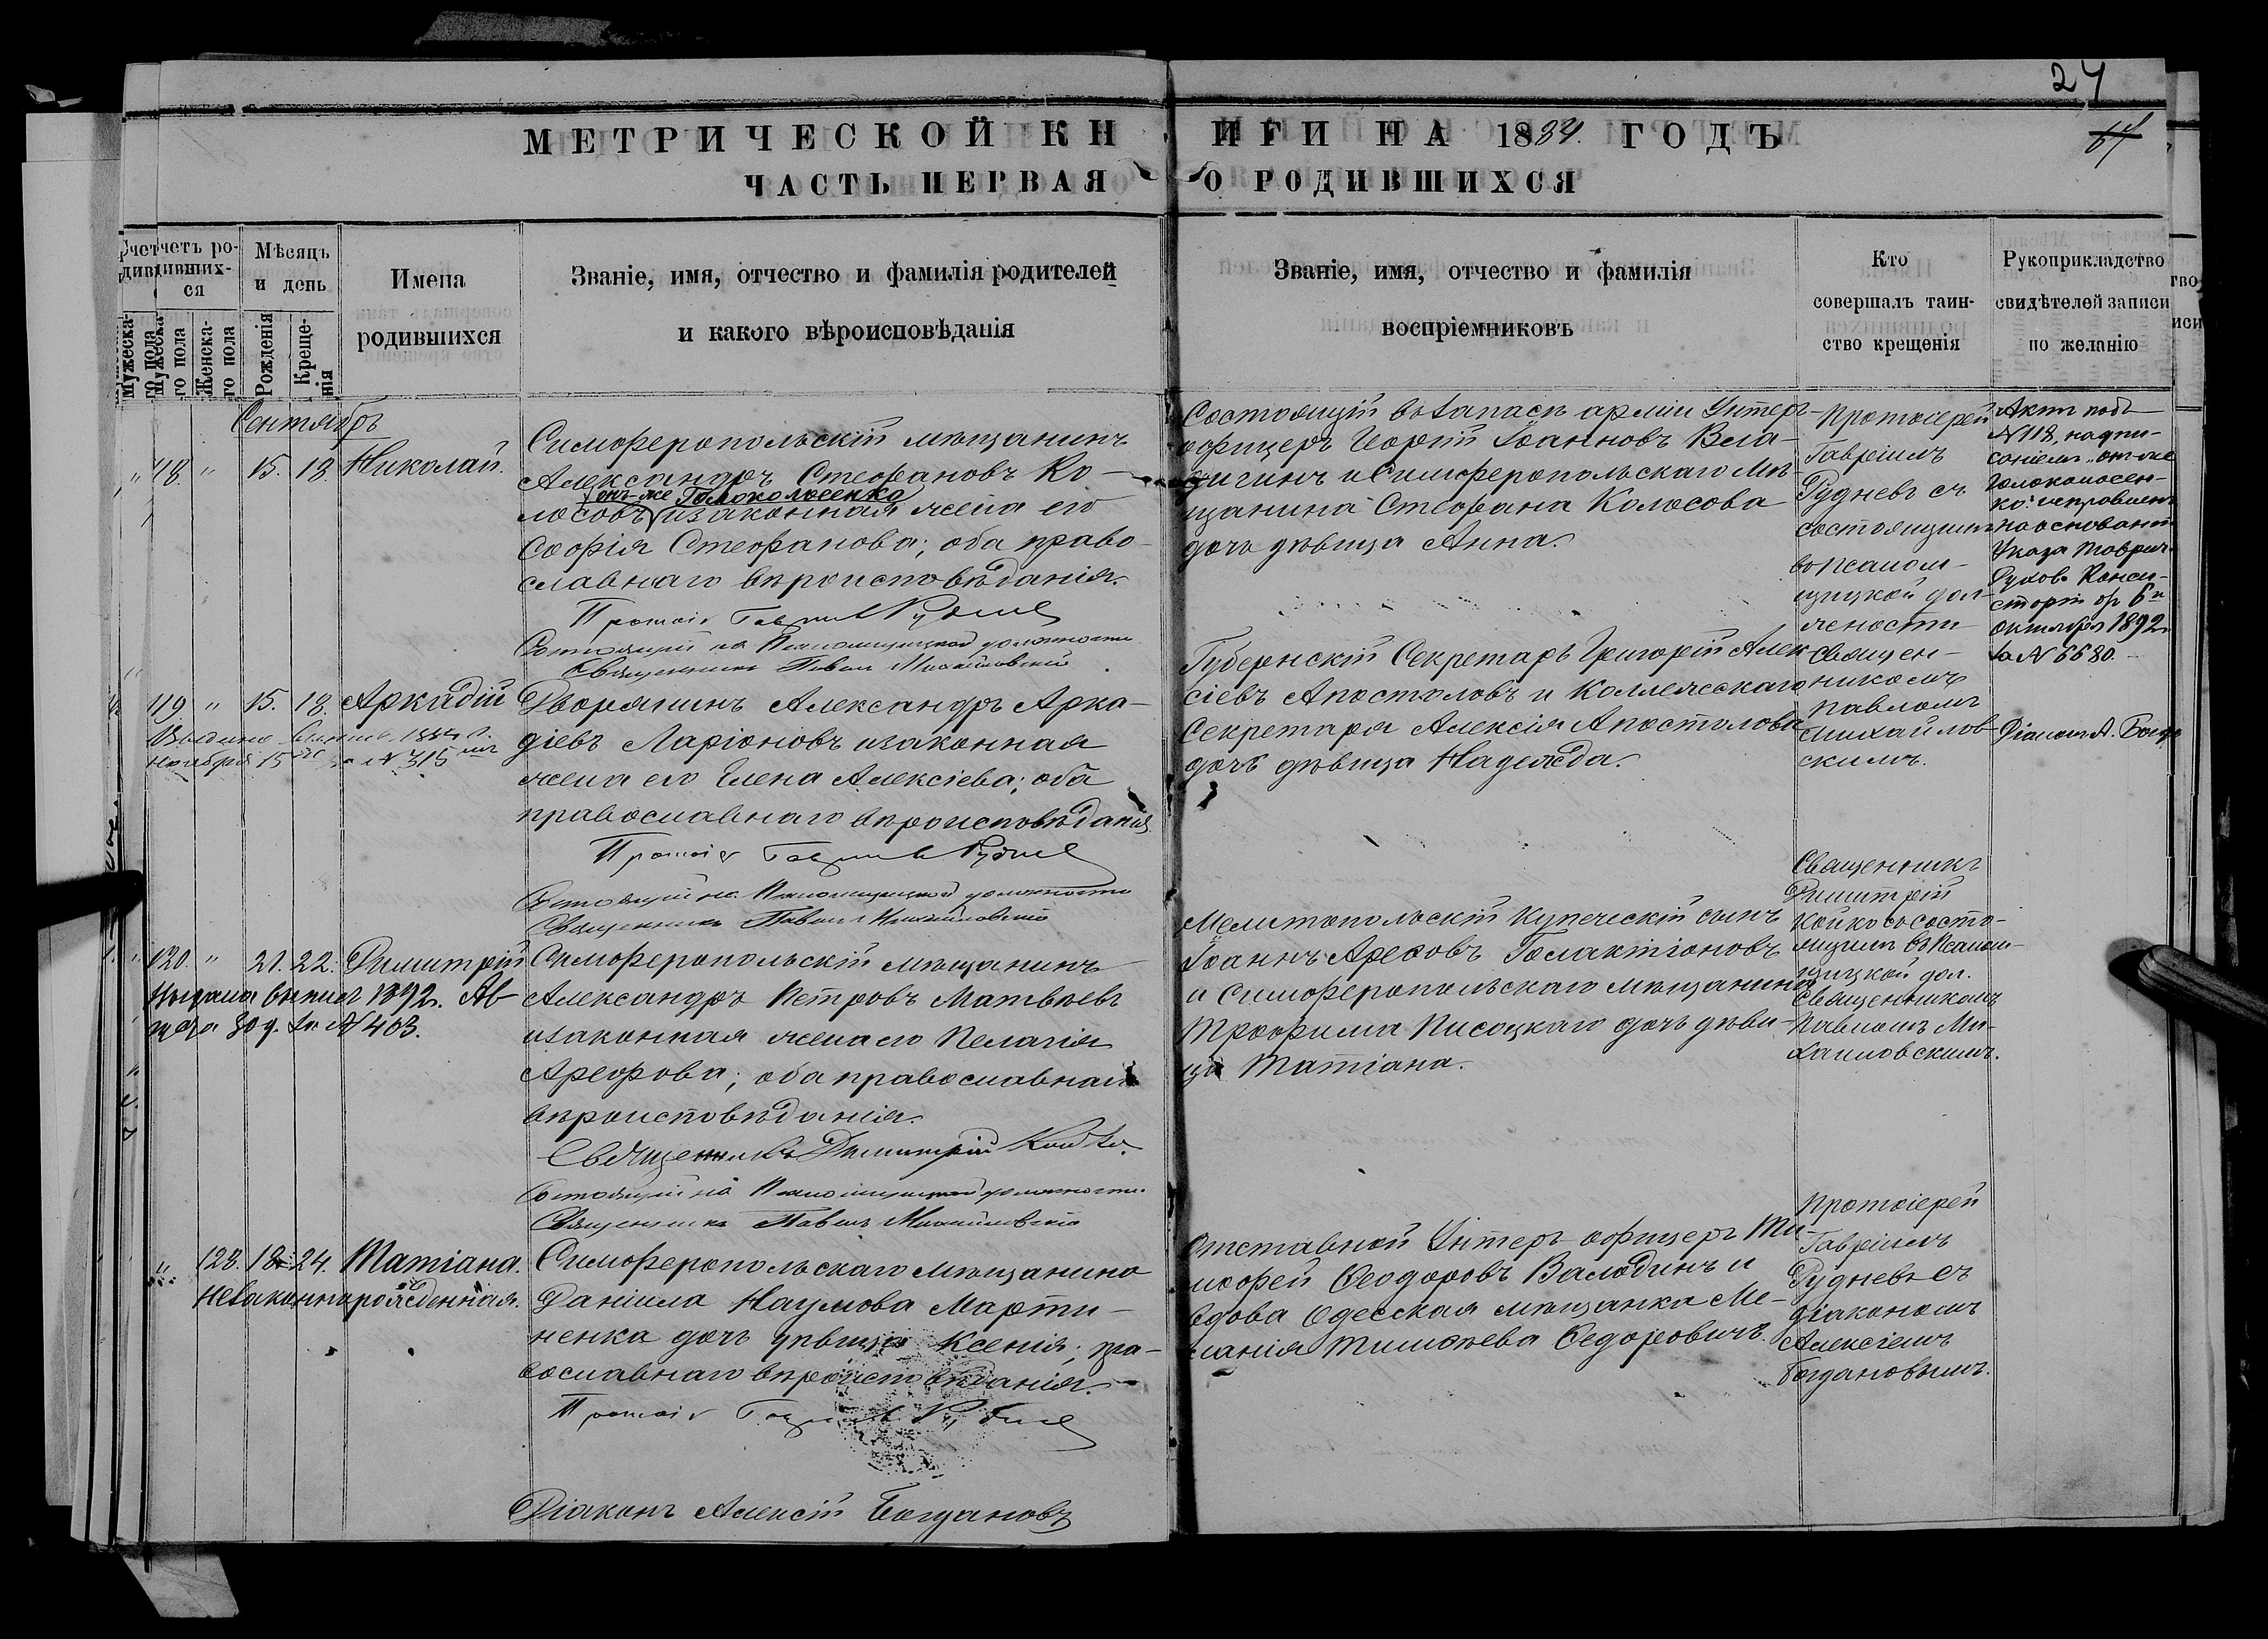 24
МЕТРИЧЕСКОЙ КН ИГИ НА 1884. ГОДЪ
64
ЧАСТЬ ПЕРВАЯ О РОДИВШИХСЯ
Счетъ ро-
дивших-
ся
Мужеска-
го пола
Женска-
го пола
Мѣсяцъ
и день
Рожденія
Креще-
нія
Имена
родившихся
Званіе, имя, отчество и фамилія родителей
и какого вѣроисповѣданія
Званіе, имя, отчество и фамилія
воспріемниковъ
Кто
совершалъ таин-
ство крещенія
Рукоприкладство
свидѣтелей записи
по желанію
Сентябрь
118. " 15. 18. Николай.
Симферопольскій мѣщанинъ
Александръ Стефановъ Ко-
онъ-же Голоколосенко
лосовъ изаконная жена его
Софія Стефанова; оба право-
славнаго вѣроисповѣданія.
Протоіе Гавріилъ Рудневъ
Состоящій на Псаломщицкой должности
Священникъ Павелъ Михайловскій
Состоящій въ запасѣ арміи Унтеръ-
офицеръ Георгій Іоанновъ
и Симферопольскаго Мѣ-
щанина Стефана Колосова
дочь дѣвица Анна.
Протоіерей
Гавріилъ
Рудневъ съ
состоящимъ
въ Псалом-
щицкой дол-
жности
Священ-
никомъ
Павломъ
Михайлов-
скимъ.
Актъ подъ
№ 118, надпи-
саніемъ "онъ-же
Голоколосен-
ко" исправленъ
на основаніи
Указа Таврич.
Духов. Конси-
сторіи отъ 6го
Октября 1892 г.
за № 6680.
119 " 15. 18. Аркадій
Ноября 15го за № 315
Дворянинъ Александръ Арка-
діевъ Ларіоновъ изаконная
жена его Елена Алексіева; оба
православнаго вѣроисповѣданія
Протоіе Гавріилъ Рудневъ
Состоящій на Псаломщицкой должности
Священникъ Павелъ Михайловскій
Губернскій Секретарь Григорій Алек-
сіевъ Апостоловъ и Коллежскаго
Секретаря Алексія Апостолова
дочь дѣвица Надежда.
Діаконъ А. Богд
120. " 21. 22. Димитрій
Выдана выпись 1892 г. Ав-
густа 30 д. за № 403.
Симферопольскій мѣщанинъ
Александръ Петровъ Матвѣевъ
изаконная жена его Пелагія
Арефова; оба православнаго
вѣроисповѣданія.
Священникъ Димитрій Койко.
Состоящій на Псаломщицкой должности.
Священникъ Павелъ Михайловскій
Мелитопольскій Купеческій сынъ
Іоаннъ Арефовъ Голактіоновъ
и Симферопольскаго мѣщанина
Трофима Писоцкаго дочь дѣви-
ца Татіана.
Священникъ
Димитрій
Койко съ состо-
ящимъ въ Псалом-
щицкой дол.
Священникомъ
Павломъ Ми-
хайловскимъ.
" 128. 18. 24. Татіана.
Незаконнорожденная.
Симферопольскаго мѣщанина
Даніила Наумова Марти-
ненка дочь дѣвица Ксенія; пра-
вославнаго вѣроисповѣданія.
Протоіе Гавріилъ Рудневъ
Діаконъ Алексій Богдановъ
Отставной Унтеръ-офицеръ Ти-
мофей Ѳеодоровъ Валодинъ и
вдова Одесская мѣщанка Ме-
ланія Тимоѳеева Ѳедоровичъ.
Протоіерей
Гавріилъ
Рудневъ съ
діакономъ
Алексіемъ
Богдановымъ.